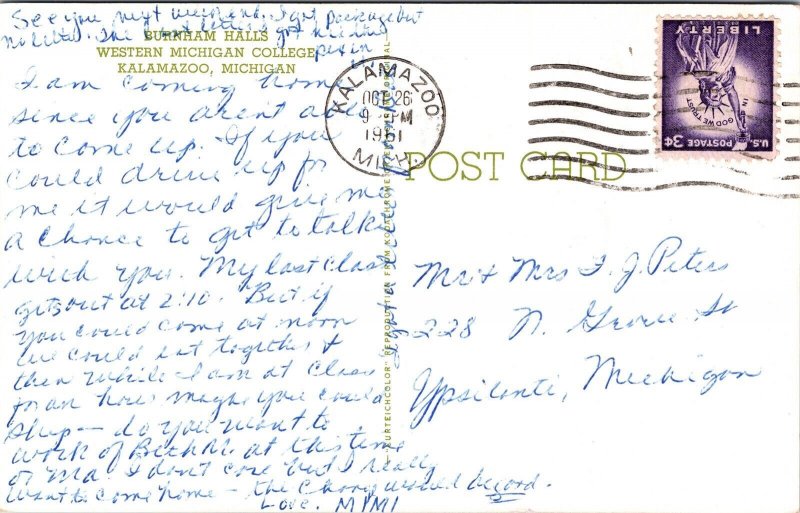 See you next weekend. I got package but
no letter. She
BURNHAM HALLS
WESTERN MICHIGAN COLLEGE
KALAMAZOO, MICHIGAN
I am coming home
since you aren't able
to come up. If you
could drive up for
me it would give me
a chance to get to talk
with you. My last class
gets out at 2:10. But if
you could come at noon
we could eat together &
then while I am at class
for an hour maybe you could
shop — do you want to
work of Beth M. at this time
or Ma. I don't care but I really
want to come home — the change would be good.
Love. MIMI
"CURTEICHCOLOR" REPRODUCTION FROM KODACHROME
POST CARD
KALAMAZOO
OCT 26
9 PM
1961
MICH.
LIBERTY
IN GOD WE TRUST
U.S. POSTAGE 3¢
Mr & Mrs F. J. Peters
228 N. Grove St
Ypsilanti, Michigan